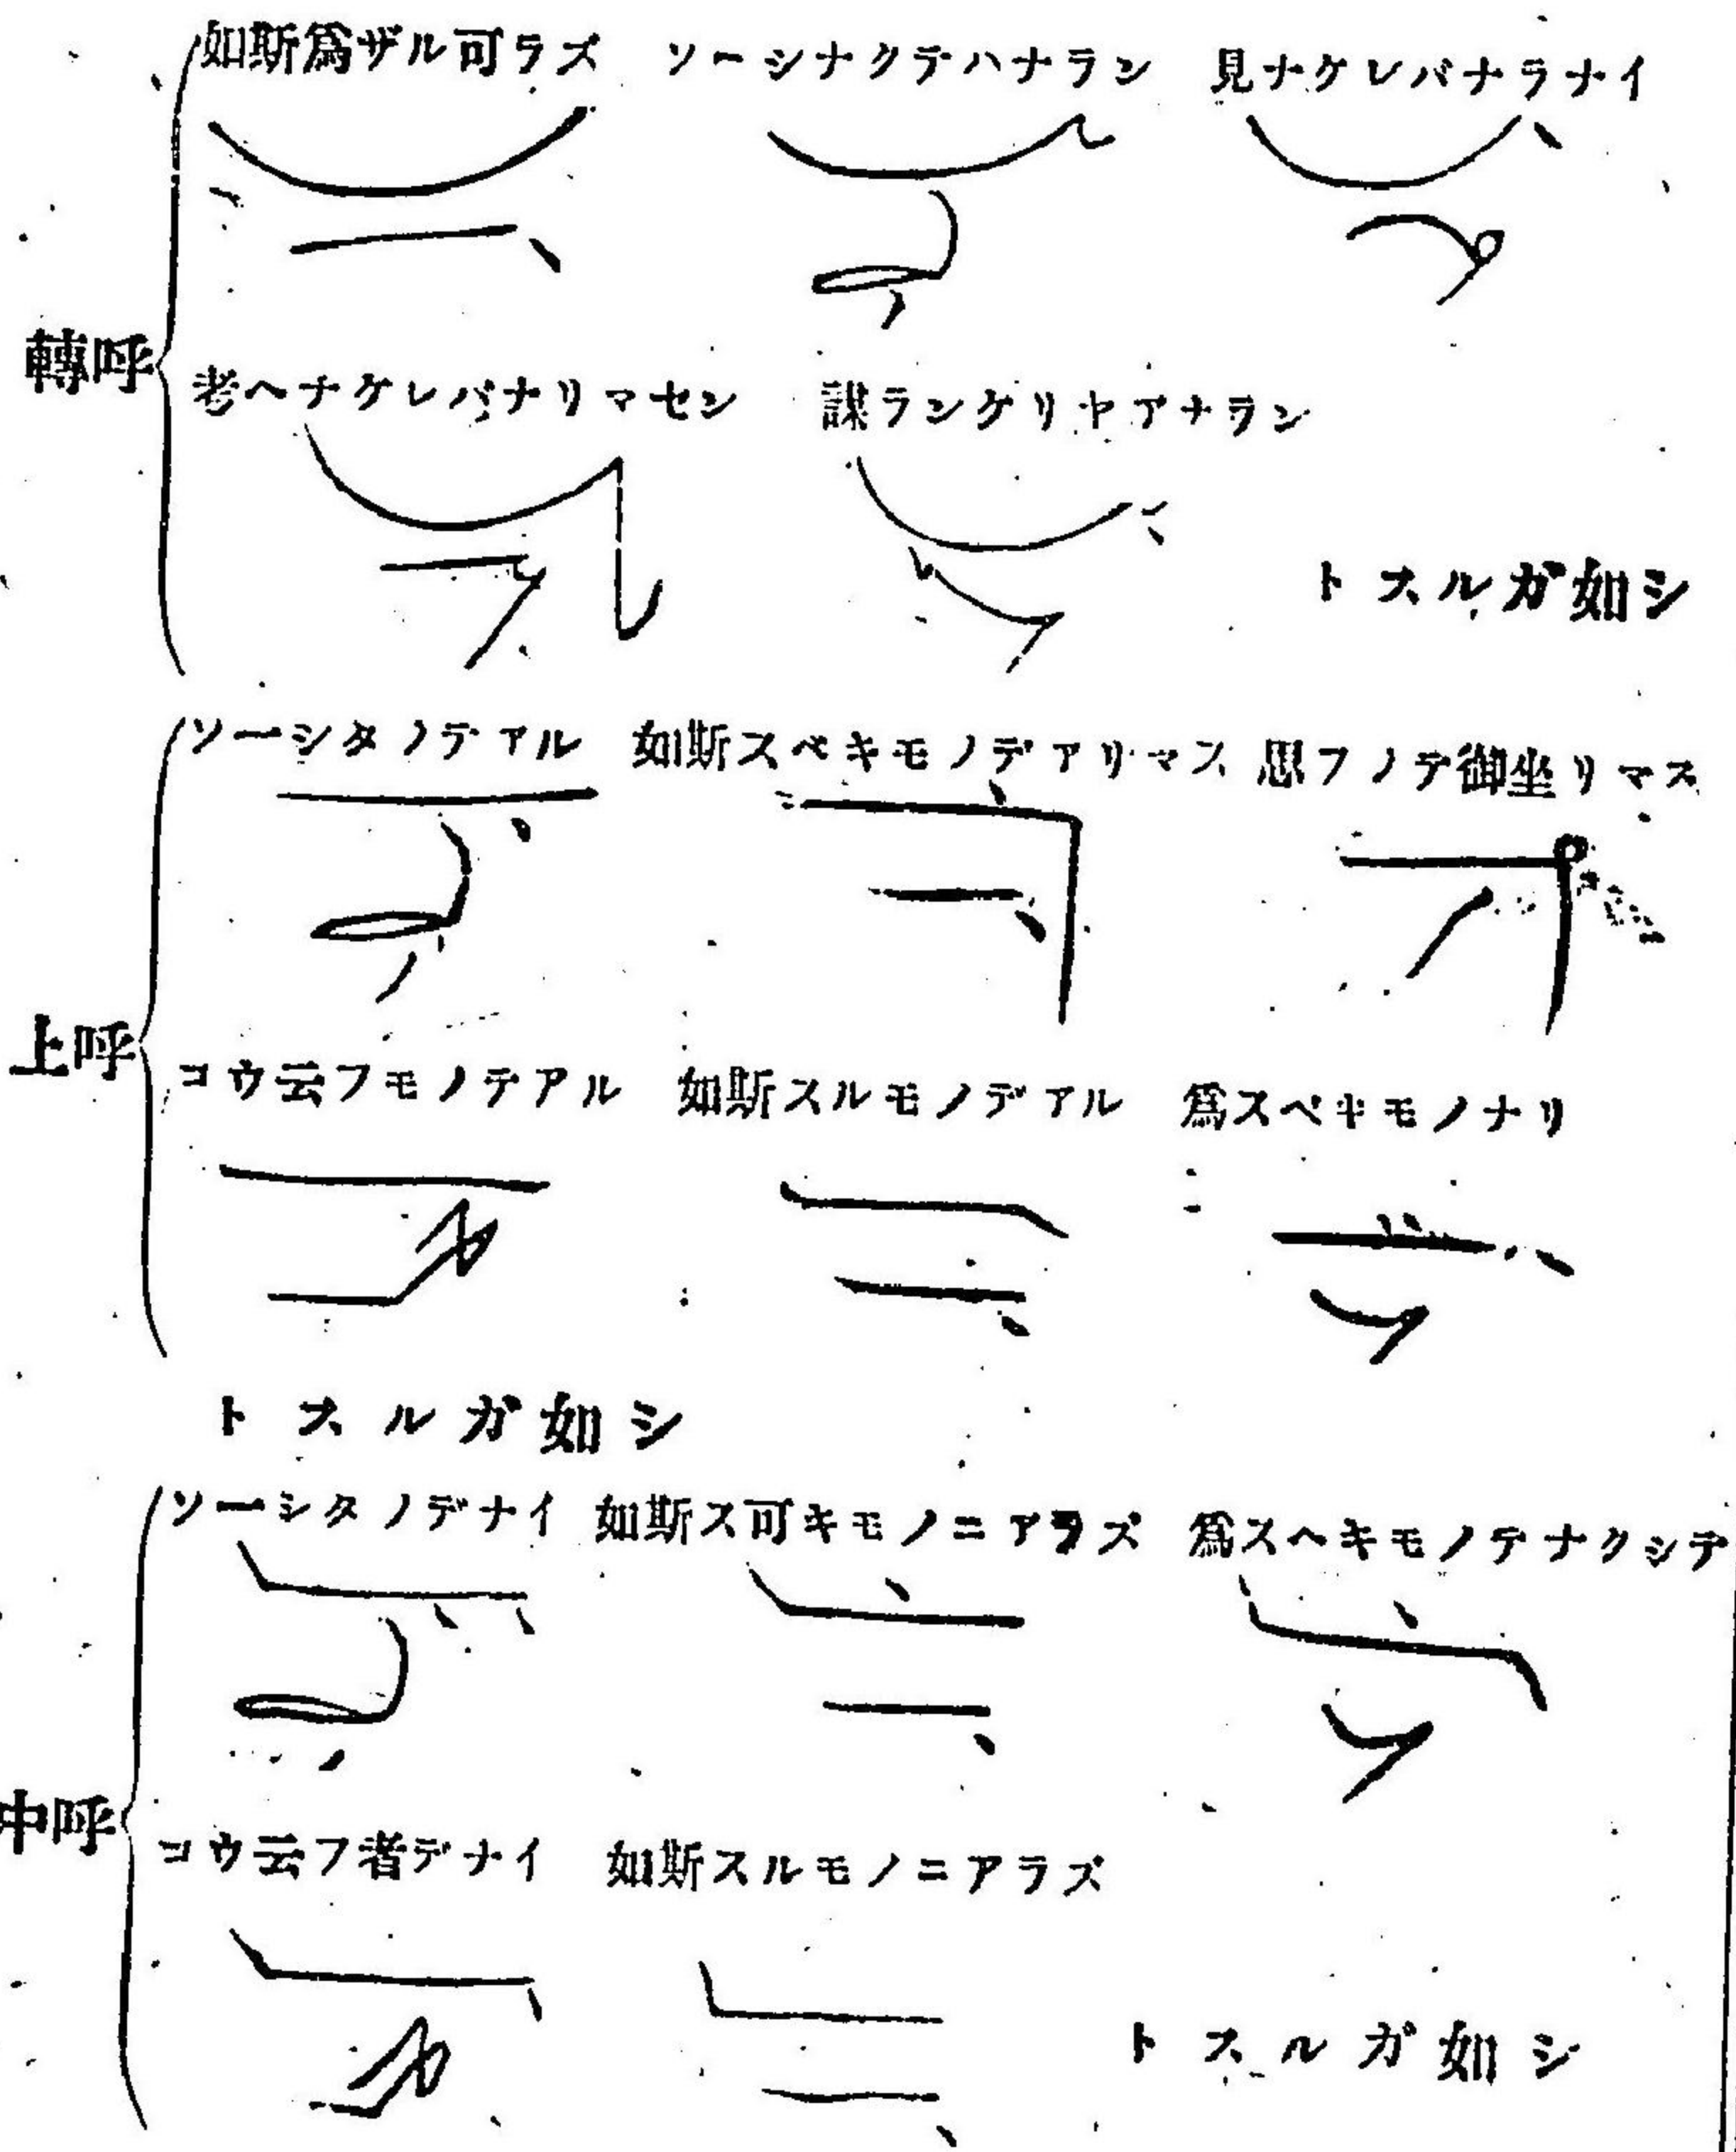 如斯爲ザル可ラズ ソーシナクテハナラン 見ナケレバナラナイ
轉呼
考ヘナケレバナリマセン 謀ランケリヤアナラン
トスルガ如シ
ソーシタノデアル 如斯スベキモノデアリマス 思フノデ御坐リマス
上呼
コウ云フモノテアル 如斯スルモノデアル 爲スベキモノナリ
トスルガ如シ
ソーシタノデナイ 如斯ス可キモノニアラズ 爲スヘキモノテナクシテ
中呼
コウ云フ者デナイ 如斯スルモノニアラズ
トスルガ如シ